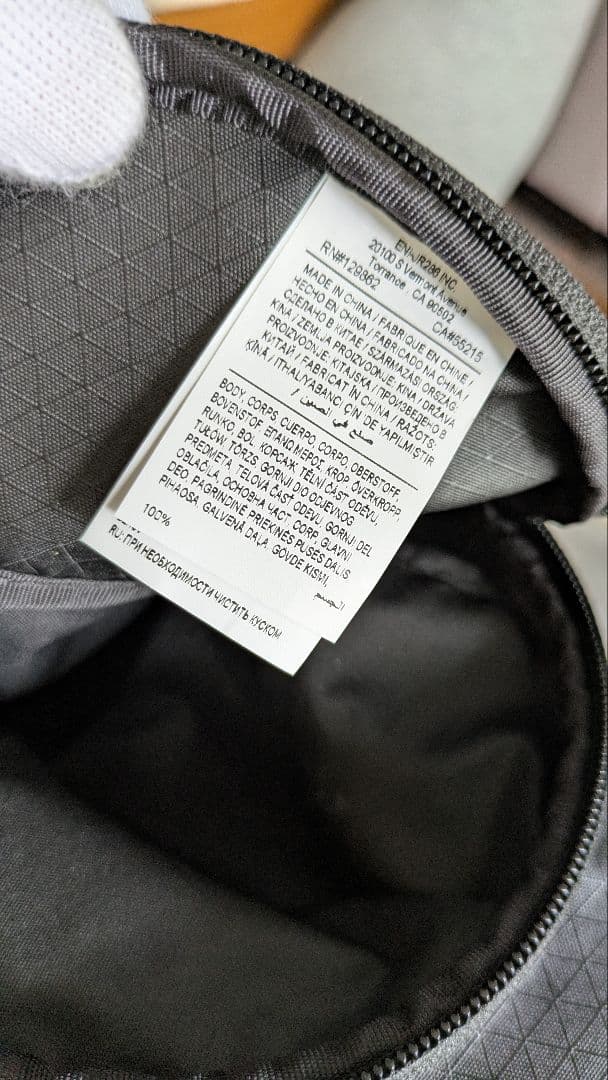 EN-JR286 INC.
20100 S Vermont Avenue
Torrance, CA 90502
RN#129862 CA#55215
MADE IN CHINA / FABRIQUE EN CHINE /
HECHO EN CHINA / FABRICADO NA CHINA /
СДЕЛАНО В КИТАЕ / SZÁRMAZÁSI ORSZÁG:
KÍNA / ZEMLJA PROIZVODNJE: KINA / DRŽAVA
PROIZVODNJE: KITAJSKA / ПРОИЗВЕДЕНО В
КИТАЙ / FABRICAT ÎN CHINA / RAŽOTS:
ĶĪNĀ / ITHALYABANC: ÇİN'DE YAPILMIŞTIR
/ صنع في الصين
BODY, CORPS, CUERPO, CORPO, OBERSTOFF,
BOVENSTOF, ΕΠΑΝΩ ΜΕΡΟΣ, KROP, ÖVERKROPP,
RUNKO, BOL, КОРСАЖ, TĚLNÍ ČÁST ODĚVU,
TUŁÓW, TÖRZS, GORNJI DIO ODJEVNOG
PREDMETA, TELOVÁ ČASŤ ODEVU, GORNJI DEL
OBLAČILA, ОСНОВНА ЧАСТ, CORP, GLAVNI
DEO, PAGRINDINĖ PRIEKINĖS PUSĖS DALIS,
PIHAOSA, GALVENĀ DAĻA, GÖVDE KISMI,
الجسم
100%
RU: ПРИ НЕОБХОДИМОСТИ ЧИСТИТЬ КУСКОМ